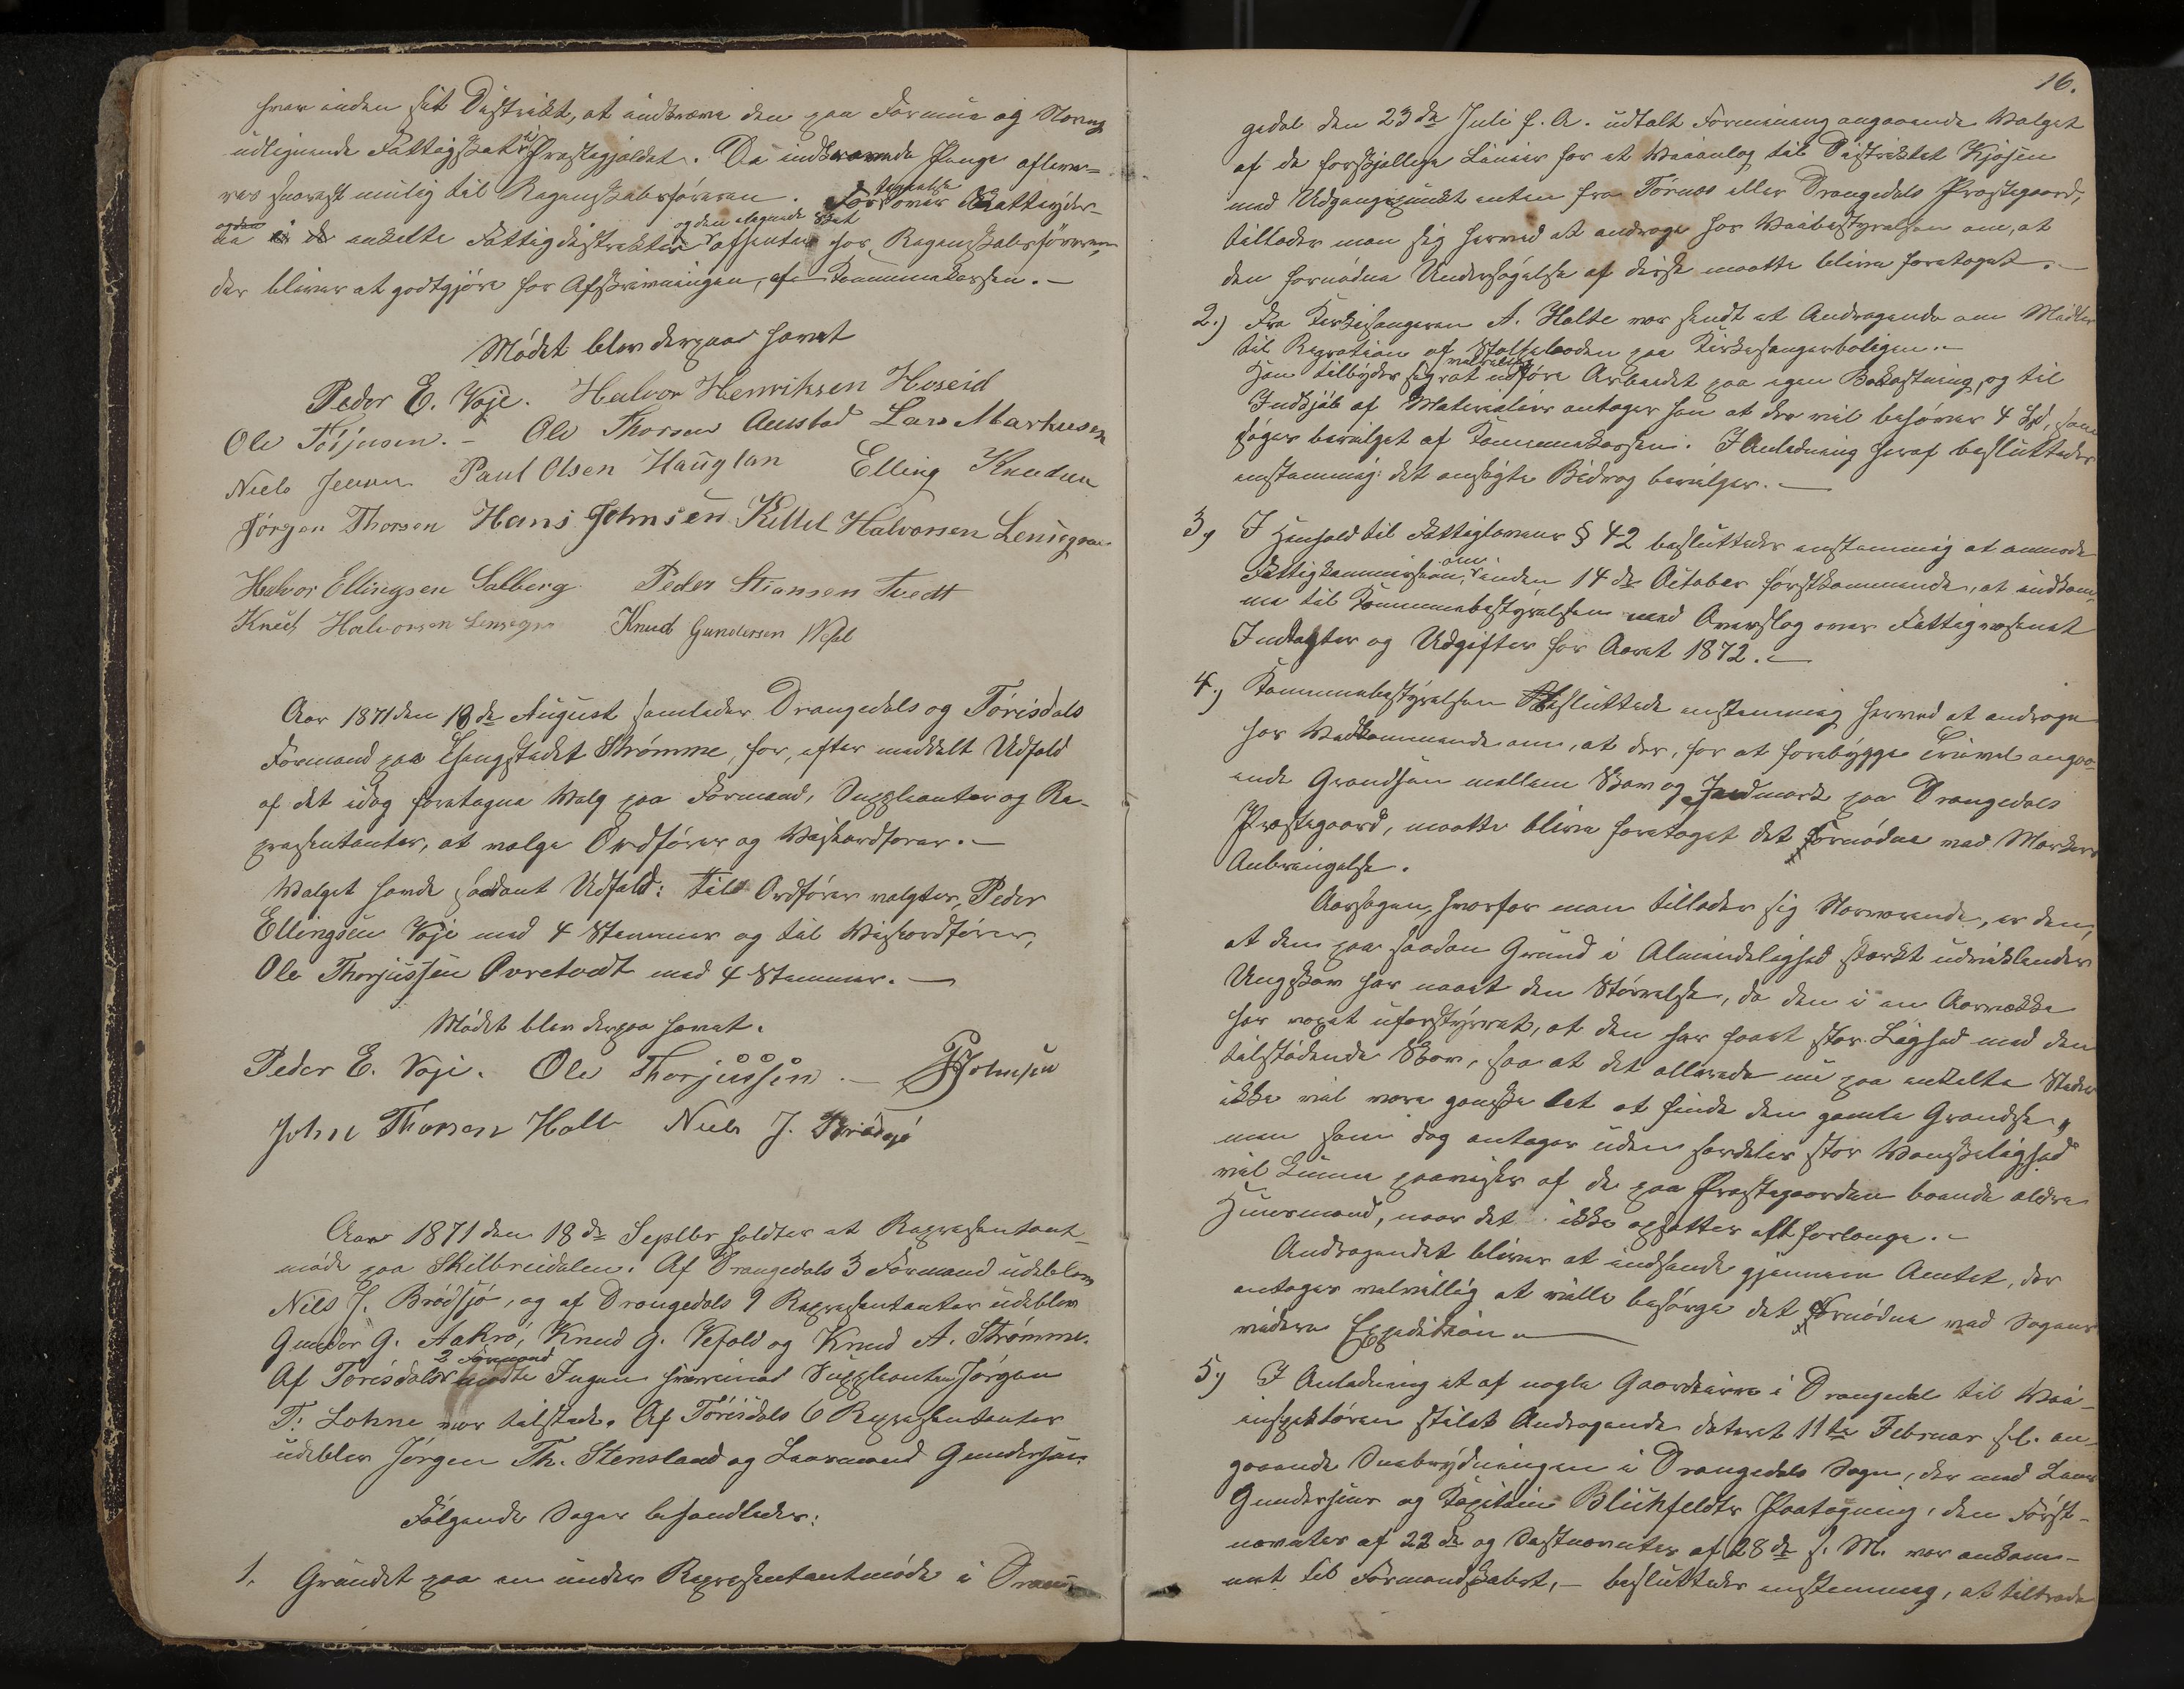 hver inden sit Distrikt, at indkræve den paa Formue og Næring
udlignende Fattigskat i Præstegjeldet. De indkrævede Penge aflever-
res snarest mulig til Regnskabsføreren. Fortegnelse over Skatteyder-
ne i de enkelte Fattigdistrikter og den lignede Skat afhentes hos Regnskabsføreren,
der bliver at godtgjøre for Afskrivningen, af Kommunekassen. —
Mødet blev derpaa hævet
Peder E. Voje. Halvor Henriksen Hoseid
Ole Toijusen. — Ole Thorsen Austad Lars Markusen
Niels Jensen Paul Olsen Hauglan Elling Knudsen
Jørgen Thorsen Hans Johnsen Kittel Halvorsen Lensegrav
Halvor Ellingsen Solberg Peder Stiansen Tvedt
Knud Halvorsen Lensegrav Knud Gundersen
Aar 1871 den 18de August samledes Drangedals og Tørisdals
Formænd paa Thingstedet Strømme, for, efter meddelt Udfald
af det idag foretagne Valg paa Formænd, Suppleanter og Re-
præsentanter, at vælge Ordfører og Viseordfører. —
Valget havde saadant Udfald: til Ordfører valgtes, Peder
Ellingsen Voje med 4 Stemmer og til Viseordfører,
Ole Thorjussen Øvretvedt med 4 Stemmer. —
Mødet blev derpaa hævet.
Peder E. Voje. Ole Thorjussen. — Johnsen
John Thorsen Holte Niels J. Brødsjø
Aar 1871 den 18de Septbr holdtes et Repræsentant-
møde paa Skilbreidalen. Af Drangedals 3 Formænd udeblev
Nils J. Brødsjø, og af Drangedals 9 Repræsentanter udeblev
Gunder G. Aakrø, Knud G. Vefald og Knud A. Strømme.
Af Tørisdals 2 Formænd mødte Ingen hvorimod Suppleanten Jørgen
T. Lohne var tilstede. Af Tørisdals 6 Repræsentanter
udeblev Jørgen Th. Stensland og Laarmand Gundersen.
Følgende Sager behandledes:
1. Grundet paa en under Repræsentantmøde i Dran-
16.
gedal den 23de Juli f. A. udtalt Formening angaaende Valget
af de forskjellige Linier for et Veianlæg til Distriktet Kjosen
med Udgangspunkt enten fra Tørnes eller Drangedals Præstegaard,
tillader man sig herved at andrage hos Veibestyrelsen om, at
den fornødne Undersøgelse af disse maatte blive foretaget. —
2.) Fra Kirkesangeren A. Holte var sendt et Andragende om Midler
til Repration af Stolpeboden paa Kirkesangerboligen. —
Han tilbyder sig at udføre Arbeidet paa egen Bekostning, og til
Indkjøb af Materialier antager han at der vil behøves 4 Spd, som
søges bevilget af Kommunekassen. I Anledning heraf besluttedes
enstemmig: det ansøgte Bidrag bevilges. —
3) I Henhold til Fattiglovens § 42 besluttedes enstemmig at anmode
Fattigkommisionen om, inden 14de October førstkommende, at indkom-
me til Kommunebestyrelsen med Overslag over Fattigvæsenets
Indtægter og Udgifter for Aaret 1872. —
4.) Kommunebestyrelsen besluttede enstemmig herved at andrage
hos Vedkommende om, at der, for at forebygge Tvivl angaa-
ende Grændsen mellem Skov og Indmark paa Drangedals
Præstegaard, maatte blive foretaget det fornødne med Mærkers
Anbringelse.
Aarsagen, hvorfor man tillader sig Nærværende, er den,
at den paa saadan Grund i Almindelighed stærkt udviklende
Ungskov har naaet den Størrelse, da den i en Aarrække
har voxet uforstyrret, at den har faaet stor Lighed med den
tilstødende Skov, saa at det allerede nu paa enkelte Steder
ikke vil være ganske let at finde den gamle Grændse,
men som dog antages uden særdeles stor Vanskelighed
vil kunne paavises af de paa Præstegaarden boende ældre
Huusmænd, naar det ikke opsættes alt forlænge. —
Andragendet bliver at indsende gjennem Amtet, der
antages velvillig at ville besørge det fornødne med Sagens
videre Expedition. —
5) I Anledning et af nogle Gaardeiere i Drangedal til Vei-
inspektøren stilet Andragende dateret 11te Februar f. l. an-
gaaende Snebrydningen i Drangedals Sogn, der med Lens
Gundersens og Kapitein Blichfeldts Paategning, den Først-
nævntes af 22de og Sidstnævntes af 28de f. M. var ankom-
met til Formandskabet, — besluttedes enstemmig, at tiltræde